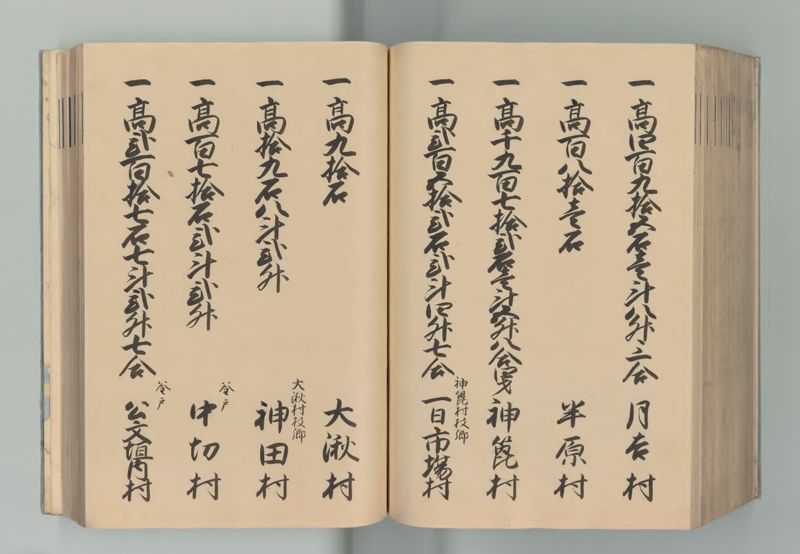 一 高四百九拾六石壱斗八升三合 月吉村
一 高百八拾壱石 半原村
一 高千九百七拾弐石壱斗五升八合 神箆村
神箆村枝郷
一 高弐百五拾弐石弐斗四升七合 一日市場村
一 高九拾石 大湫村
大湫村枝郷
一 高拾九石八斗弐升 神田村
釜戸
一 高百七拾石弐斗弐升 中切村
釜戸
一 高弐百拾七石七斗弐升七合 公文垣内村